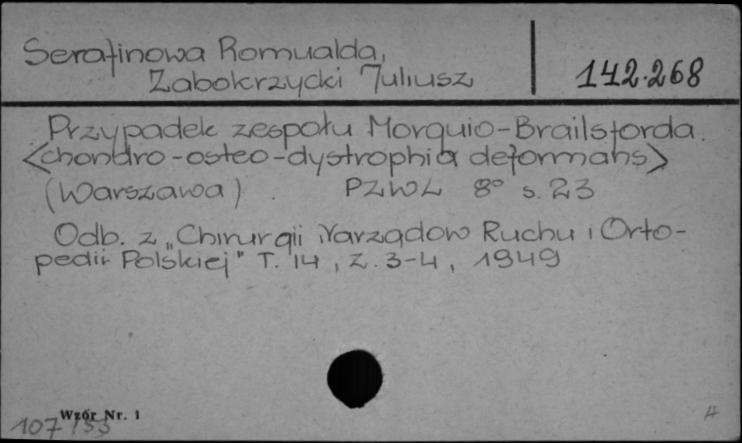 Serafinowa Romualda,
Zabokrzycki Juliusz
142.268
Przypadek zespołu Morquio-Brailsforda.
<chondro-osteo-dystrophia deformans>
(Warszawa). PZWL 8° s. 23
Odb. z „Chirurgii Narządow Ruchu i Orto-
pedii Polskiej" T. 14, Z. 3-4, 1949
Wzór Nr. 1
107/53